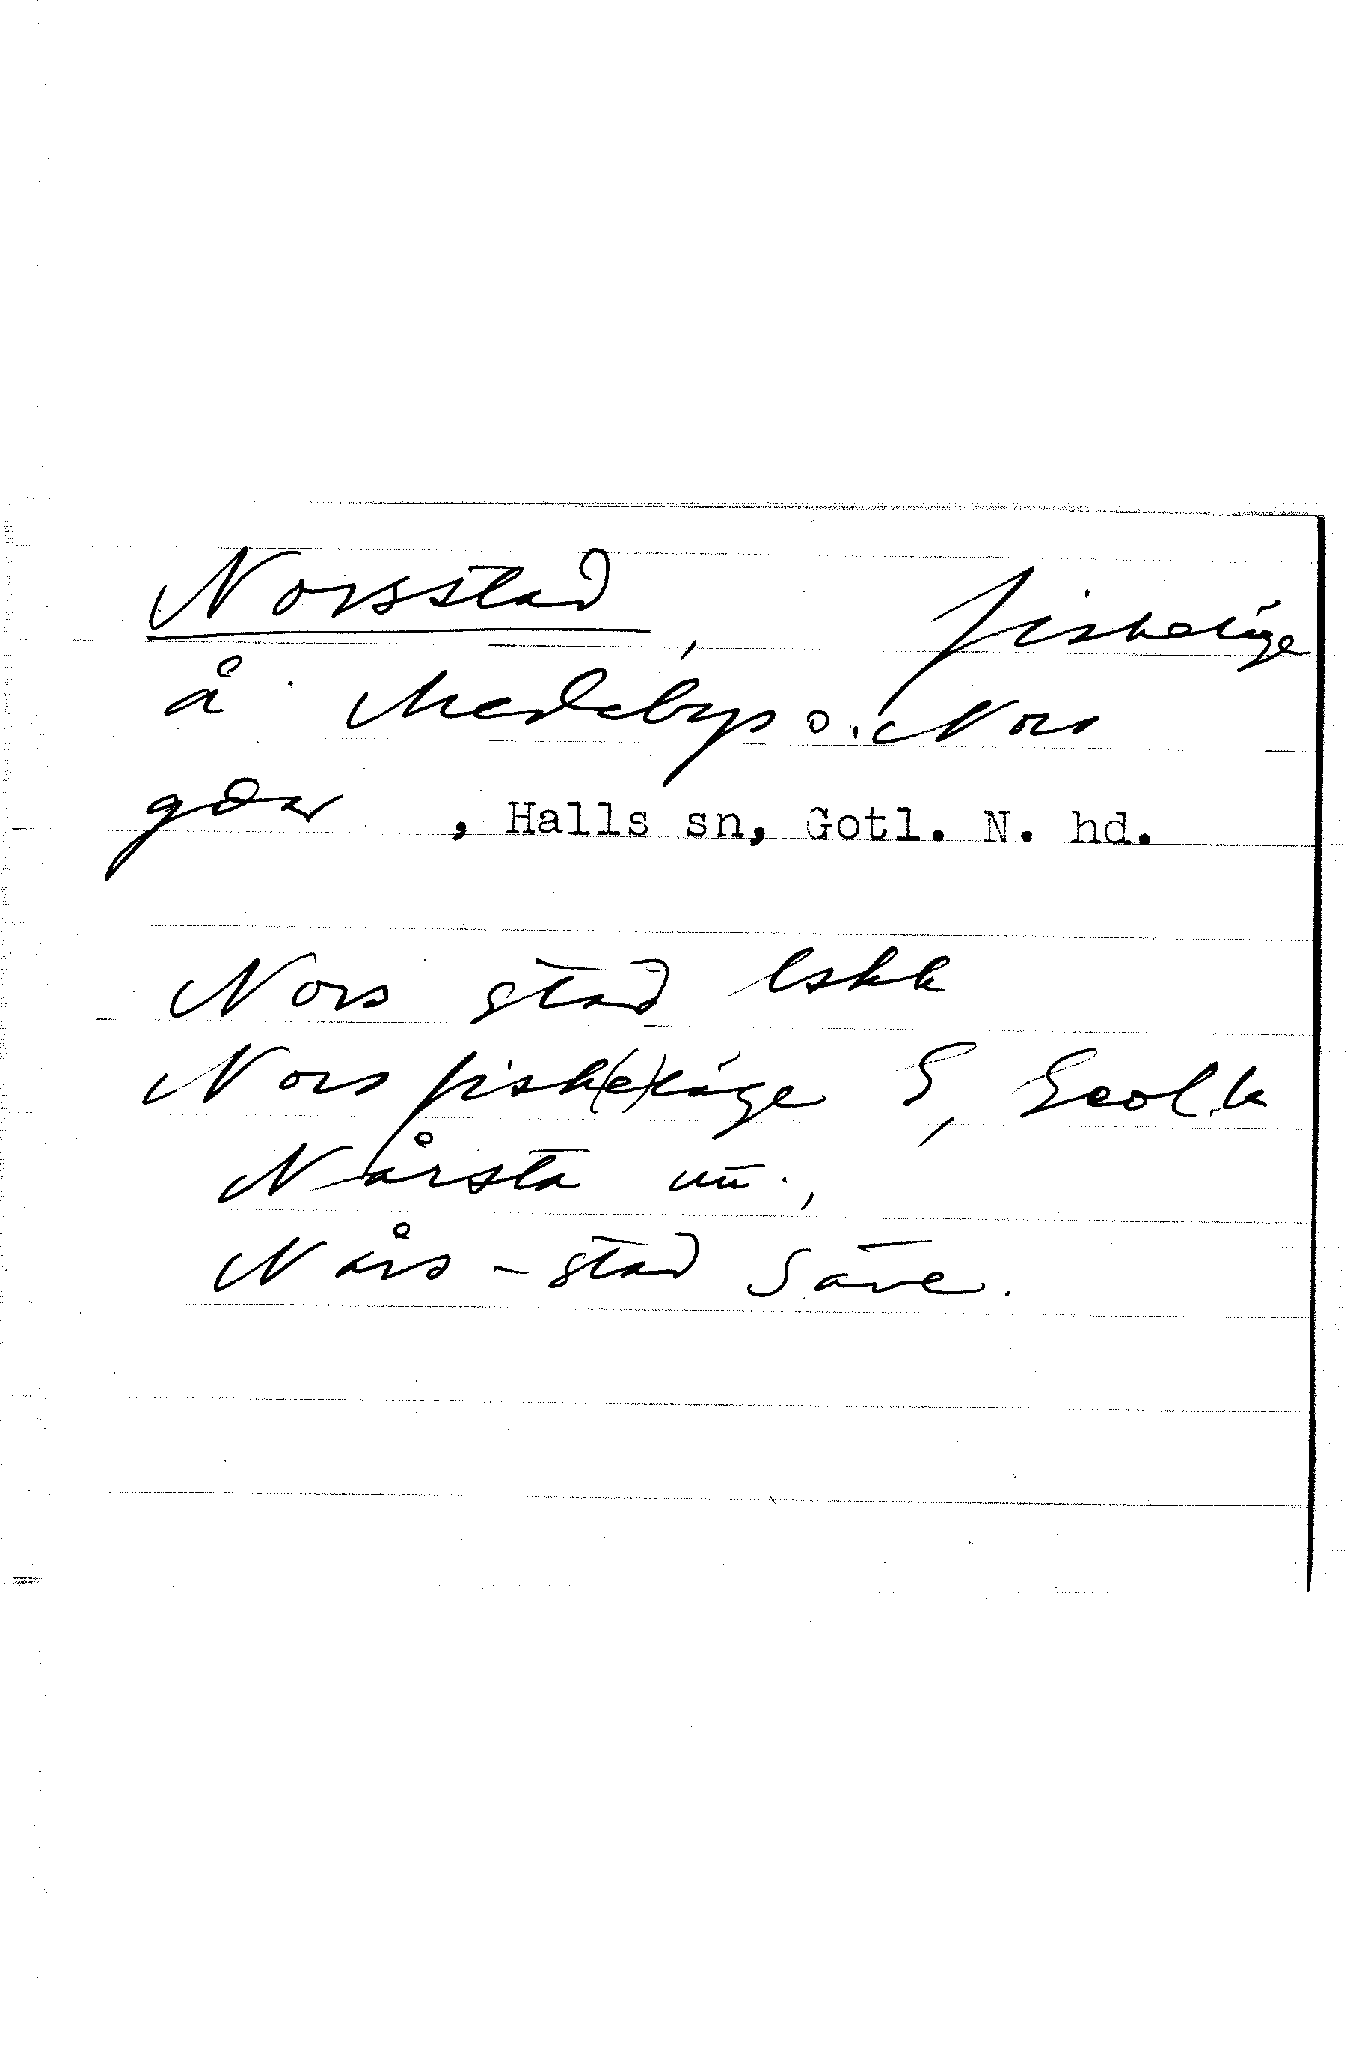 Norsstad, fiskeläge
å Medebys o. Nors
gdar, Halls sn, Gotl. N. hd.
Nors stad Eskk
Nors fisk(e)läge G, Geol.k
Nårsta un.,
Nårs-stad Säve.